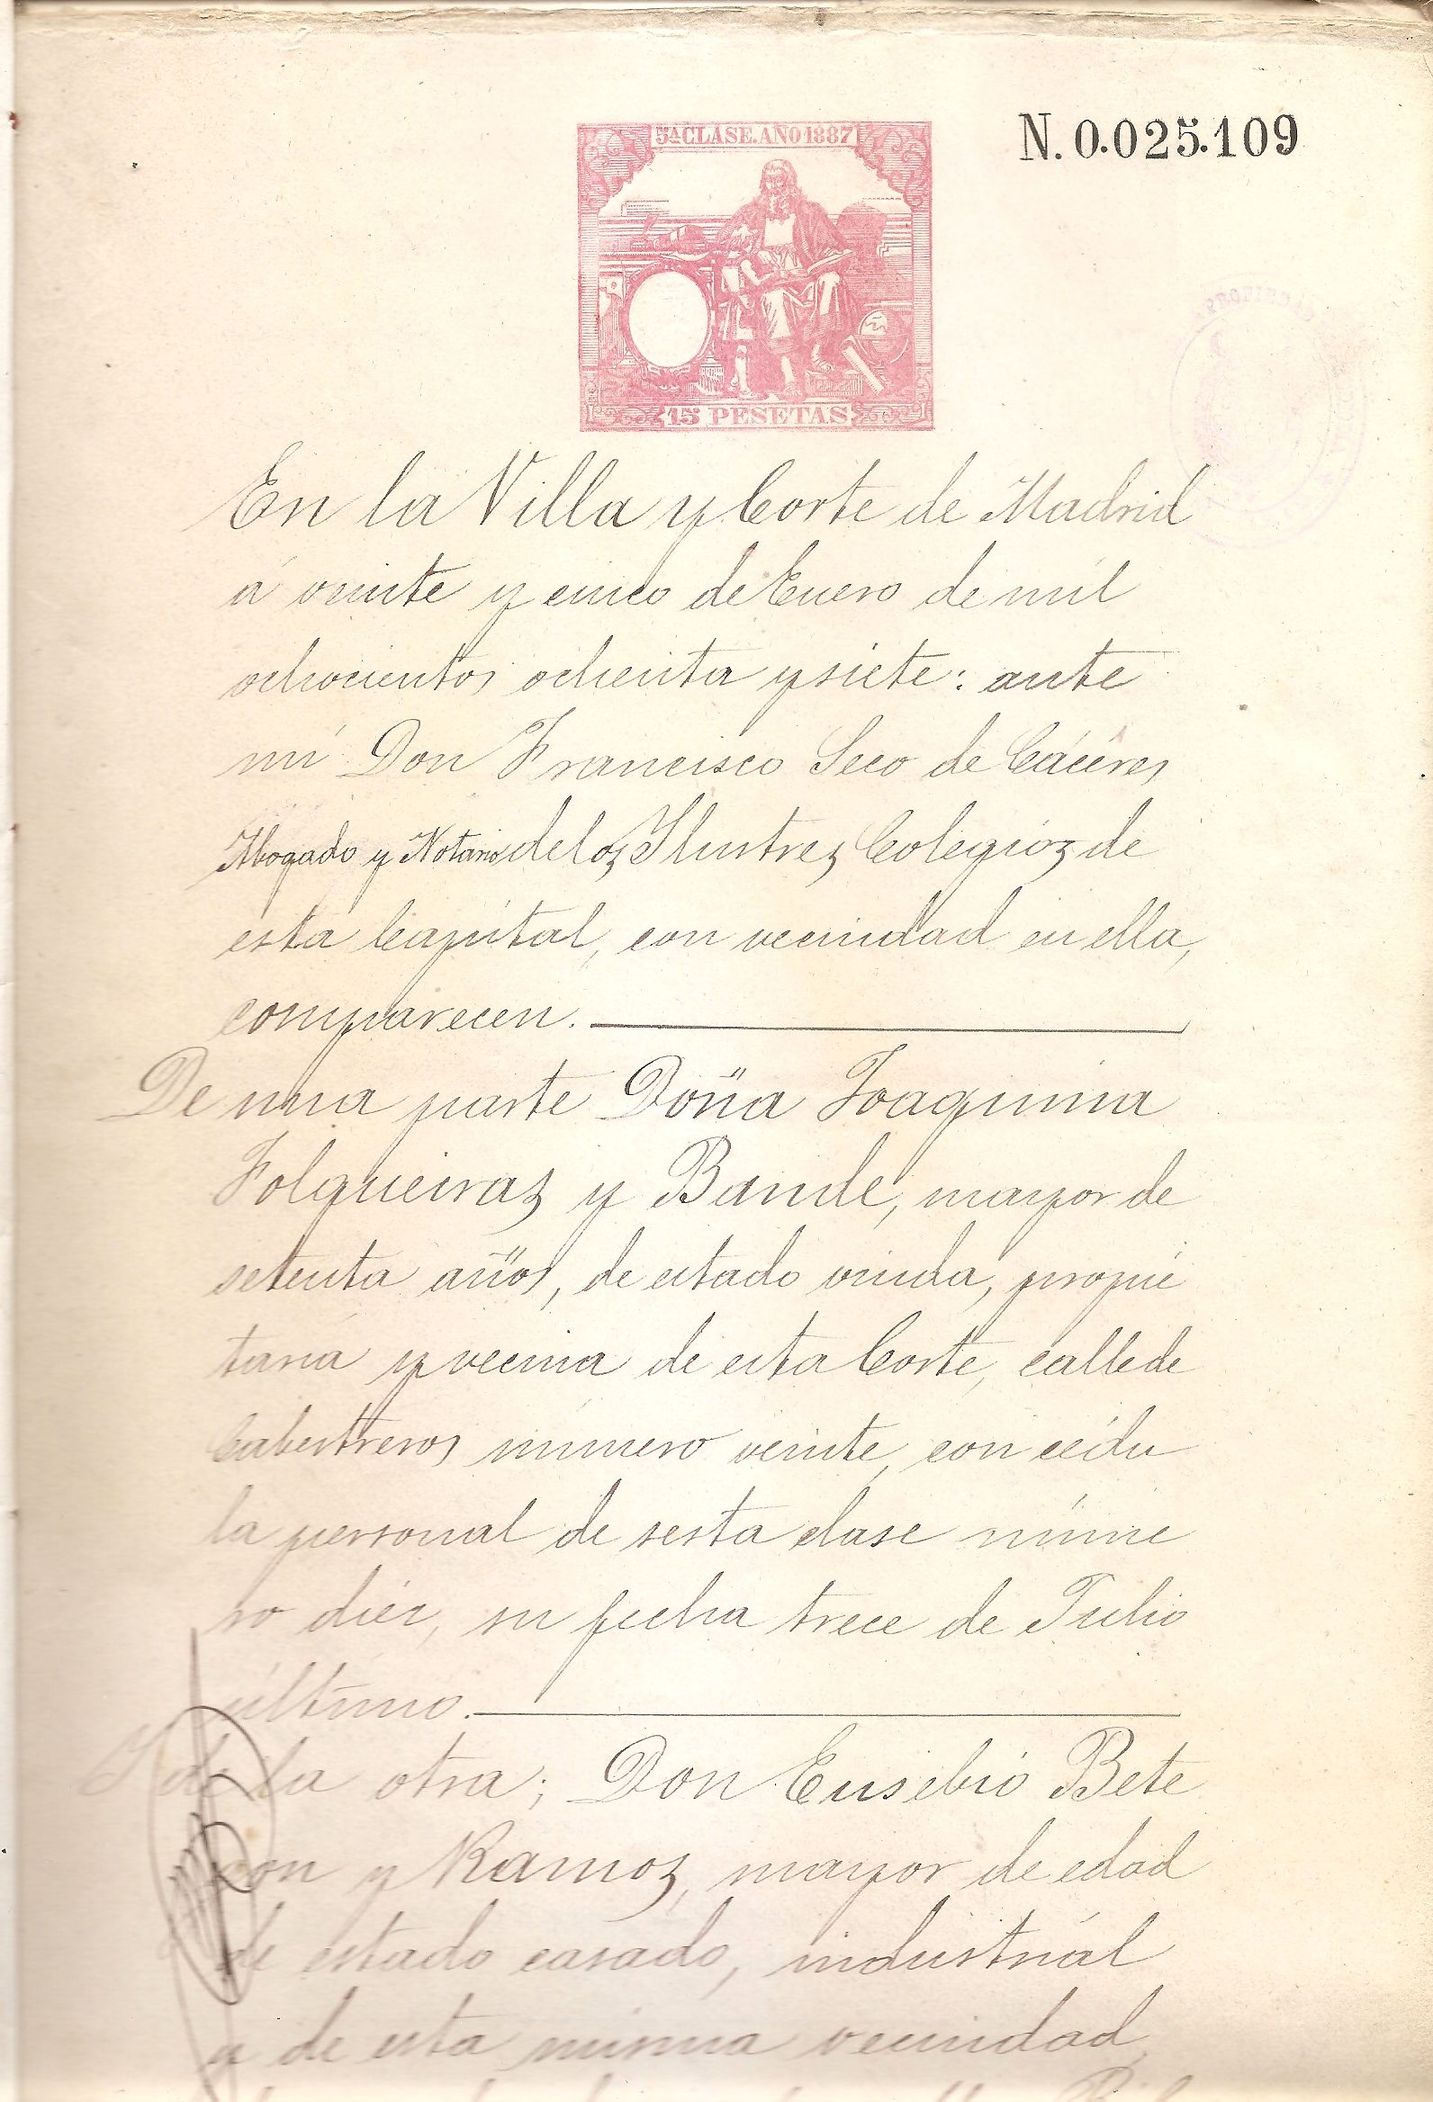 5ª CLASE. AÑO 1887
N. 0.025.109
15 PESETAS
PROPIEDAD
En la Villa y Corte de Madrid
á veinte y cinco de Enero de mil
ochocientos ochenta y siete: ante
mí Don Francisco Seco de Cáceres
Abogado y Notario de los Ilustres Colegios de
esta Capital, con vecindad en ella,
comparecen.
De una parte Doña Joaquina
Folgueiras y Bande, mayor de
setenta años, de estado viuda, propie
taria y vecina de esta Corte, calle de
Cabestreros número veinte, con cédu
la personal de sesta clase núme
ro diez, su fecha trece de Julio
último.
Y de la otra; Don Eusebio Bete
con y Ramos, mayor de edad
de estado casado, industrial
y de esta misma vecindad,